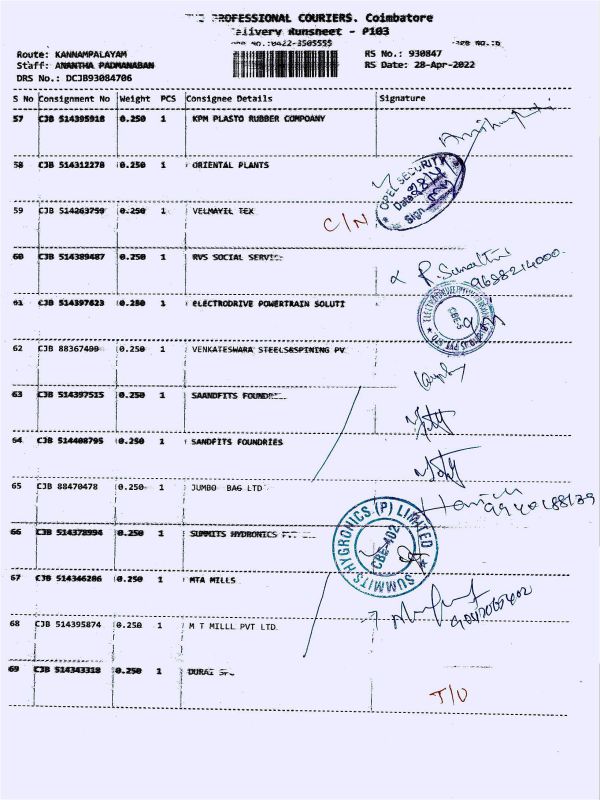 THE PROFESSIONAL COURIERS. Coimbatore
Delivery Runsheet - P103
Route: KANNAMPALAYAM
RS No.: 930847
Staff: ANANTHA PADMANABAN
RS Date: 28-Apr-2022
DRS No.: DCJB93084706
S No Consignment No Weight PCS Consignee Details Signature
57 CJB 514395918 0.250 1 KPM PLASTO RUBBER COMPOANY
58 CJB 514312278 0.250 1 ORIENTAL PLANTS
OPEL SECURITY
Date
Sign
59 CJB 514263759 0.250 1 VELMAYIL TEX
C/N
60 CJB 514389487 0.250 1 RVS SOCIAL SERVIC
9688214000
61 CJB 514397623 0.250 1 ELECTRODRIVE POWERTRAIN SOLUTI
62 CJB 88367499 0.250 1 VENKATESWARA STEELS&SPINING PV
63 CJB 514397515 0.250 1 SAANDFITS FOUNDRI
64 CJB 514408795 0.250 1 SANDFITS FOUNDRIES
65 CJB 88470478 0.250 1 JUMBO BAG LTD
66 CJB 514378994 0.250 1 SUMMITS HYDRONICS
SUMMITS HYGRONICS (P) LIMITED
CBE-402
67 CJB 514346286 0.250 1 MTA MILLS
68 CJB 514395874 0.250 1 M T MILLL PVT LTD
69 CJB 514343318 0.250 1 DURAI
T/U